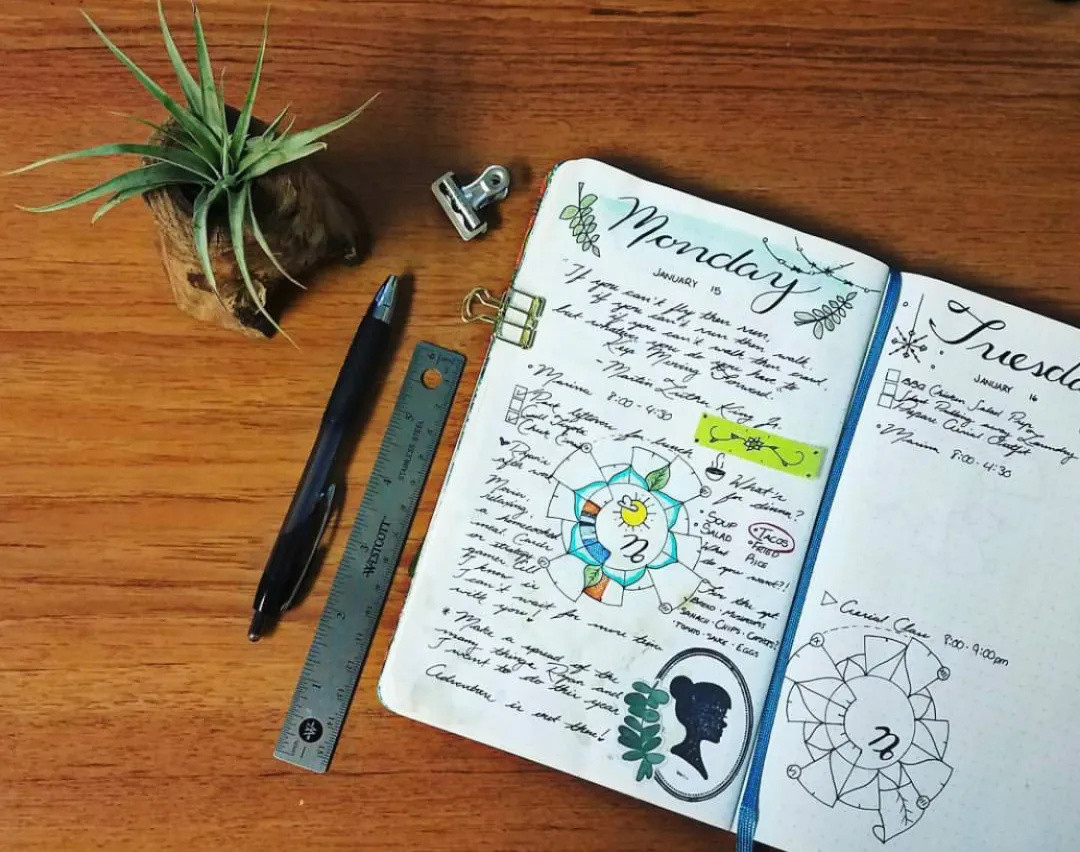 Monday
JANUARY 15
"If you can't fly then run,
if you can't run then walk,
if you can't walk then crawl,
but whatever you do you have to
Keep Moving Forward."
- Martin Luther King Jr.
• Marina 8:00 - 4:30
Put leftover for lunch
after work
relaxing,
a homecooked
meal. Cards
or strategy
games. All
I know is
I can't wait for more time
with you!
* Make a spread of the
many things Ryan and
I want to do this year
Adventure is out there!
What's
for dinner?
• SOUP
SALAD
• TACOS
• FRIED
RICE
What
do you want?!
BREAD • MUSHROOMS
• CHIPS •
TOMATO • EGGS
n
Tuesda
JANUARY 16
BBQ Chicken Salad Prep
Prepare Aerial Outfit
• Marina 8:00 - 4:30
Aerial Class 8:00 - 9:00pm
n
WESTCOTT
STAINLESS STEEL
6
5
4
3
2
1